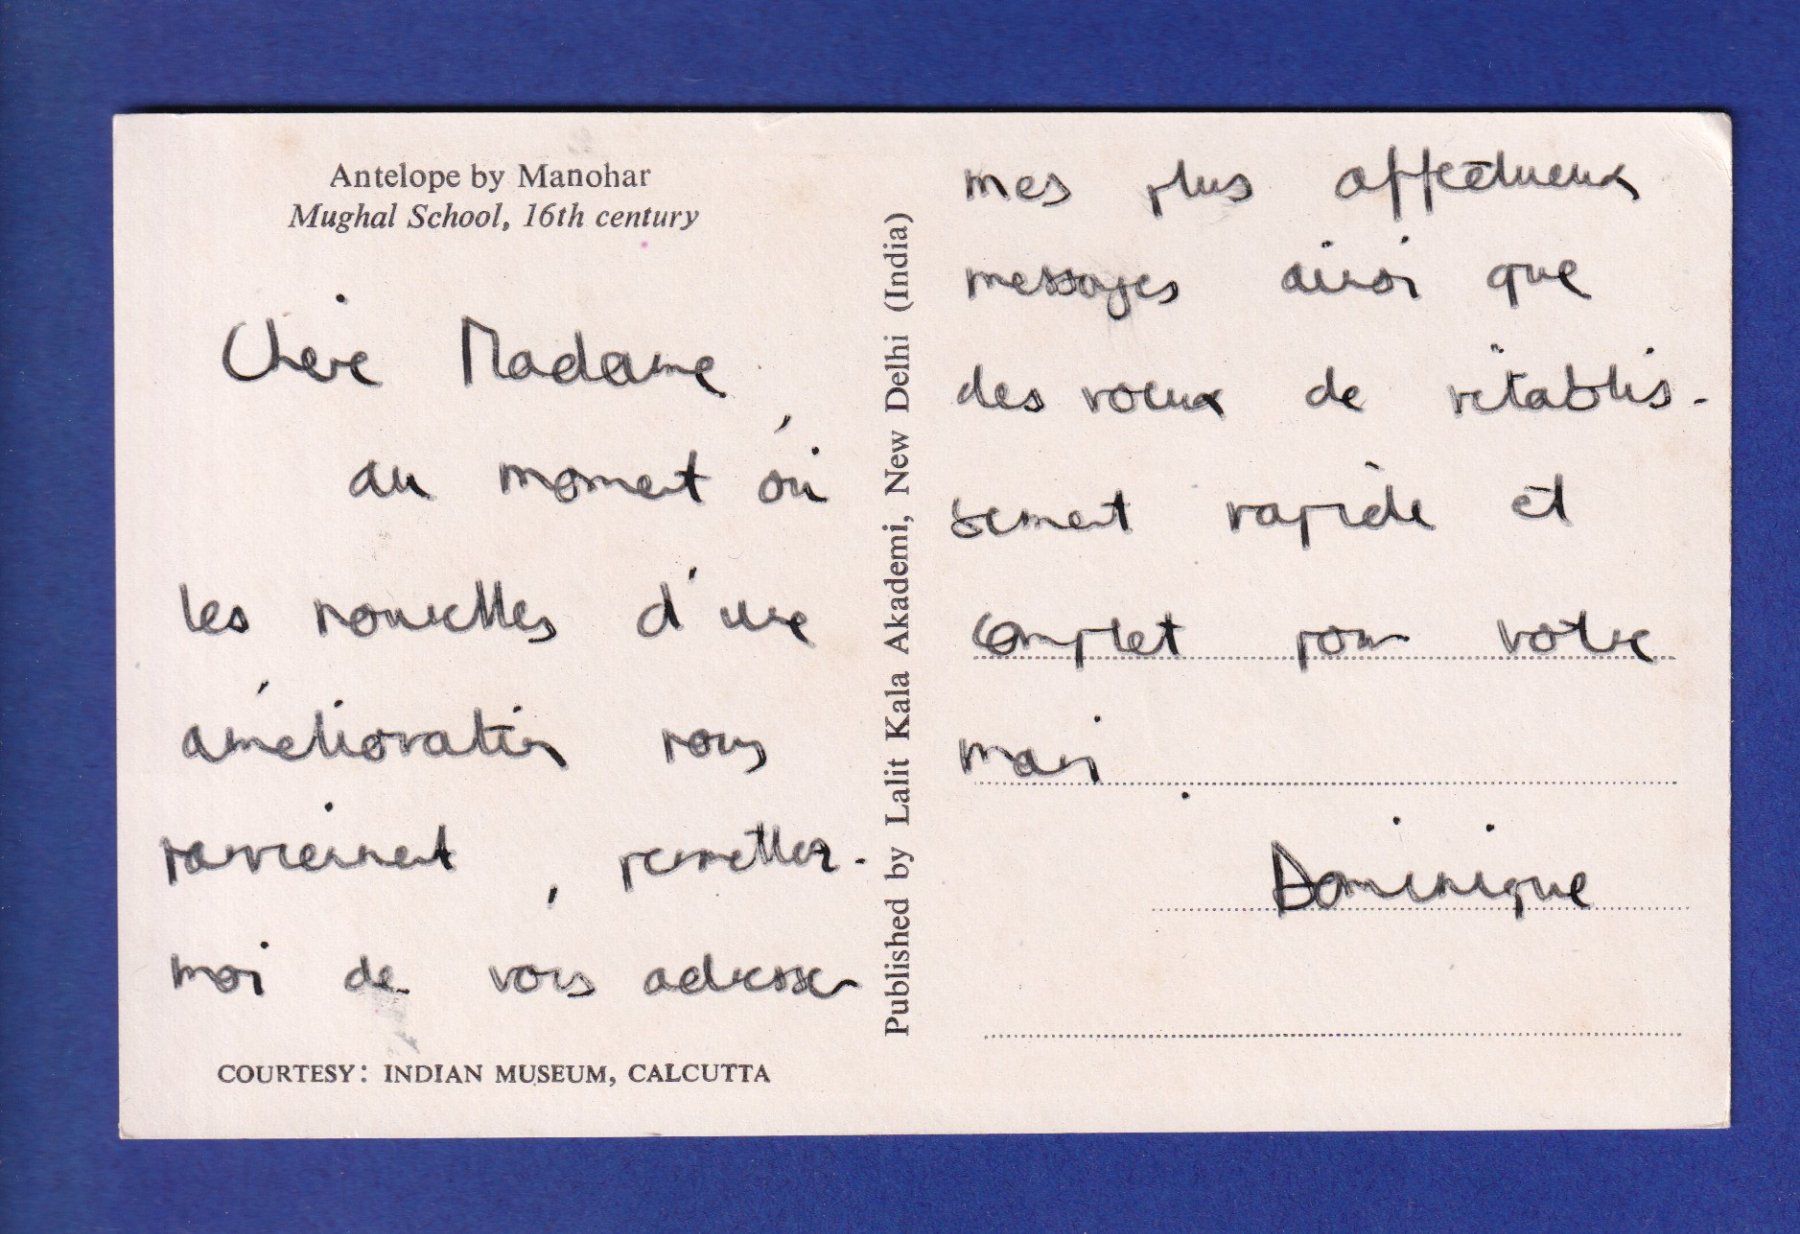 Antelope by Manohar
Mughal School, 16th century
Chère Madame,
au moment où
les nouvelles d'une
amélioration nous
parviennent, permettez-
moi de vous adresser
COURTESY: INDIAN MUSEUM, CALCUTTA
Published by Lalit Kala Akademi, New Delhi (India)
mes plus affectueux
messages ainsi que
des voeux de rétablis-
sement rapide et
complet pour votre
mari.
Dominique